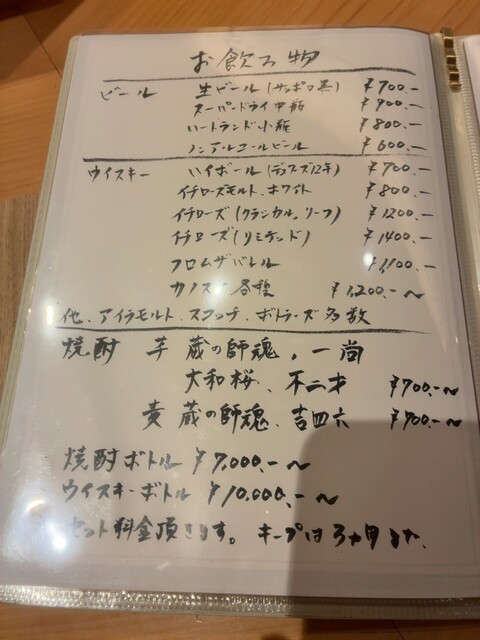 お飲み物
ビール 生ビール(サッポロ黒) ¥700.-
スーパードライ中瓶 ¥900.-
ハートランド小瓶 ¥800.-
ノンアルコールビール ¥600.-
ウイスキー ハイボール(デュワーズ12年) ¥700.-
イチローズモルト.ホワイト ¥800.-
イチローズ(クラシカル.リーフ) ¥1200.-
イチローズ(リミテッド) ¥1400.-
フロムザバトル ¥1,100.-
カノスケ各種 ¥1,200.-～
他、アイラモルト、スコッチ、ボトラーズ多数
焼酎 芋 蔵の師魂、一尚
大和桜、不二才 ¥700.-～
麦 蔵の師魂、吉四六 ¥700.-～
焼酎ボトル ¥7,000.-～
ウイスキーボトル ¥10,000.-～
セット料金頂きます。キープは3ヶ月